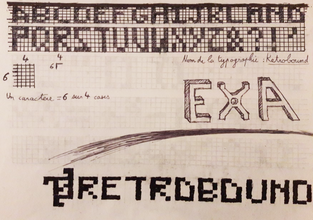 PQRSTUVWXYZ&?!"
Nom de la typographie : Retrobound
4 4
6 6
Un caractère = 6 sur 4 cases
EXA
RETROBOUND